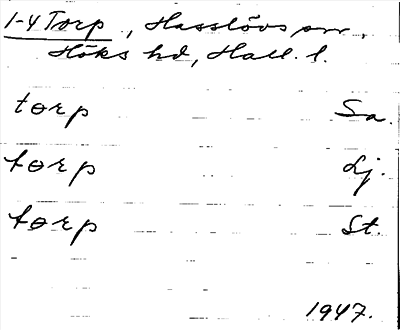 1-4 Torp, Hasslövs sn.,
Höks hd, Hall. l.
tɵrp Sa.
tɵrp Lj.
tɵrp St.
1947.